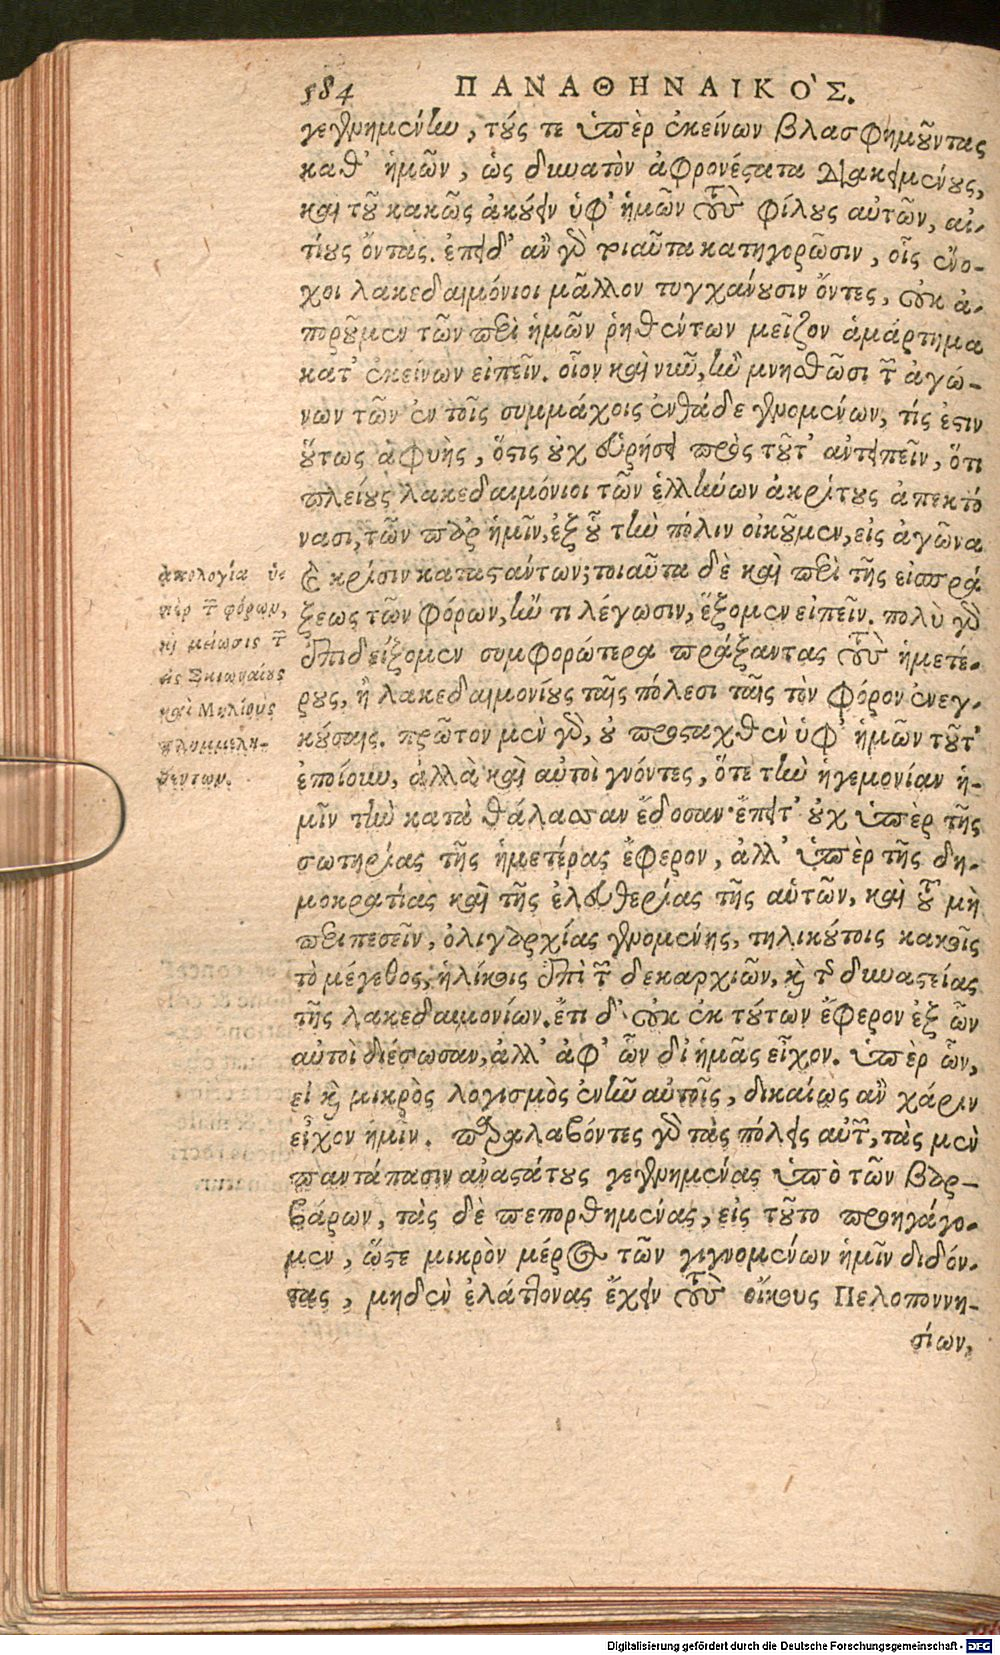 584 ΠΑΝΑΘΗΝΑΙΚΟ'Σ.
γεγενημένην, τούς τε ὑπὲρ ἐκείνων βλασφημοῦντας
καθ' ἡμῶν, ὡς δυνατὸν ἀφρονέστατα διακειμένους,
καὶ τοῦ κακῶς ἀκούειν ὑφ' ἡμῶν τοὺς φίλους αὐτῶν, αἰ-
τίους ὄντας. ἐπειδ' ἂν γὰρ τοιαῦτα κατηγορῶσιν, οἷς ἔνο-
χοι λακεδαιμόνιοι μᾶλλον τυγχάνουσιν ὄντες, οὐκ ἀ-
ποροῦμεν τῶν περὶ ἡμῶν ῥηθέντων μεῖζον ἁμάρτημα
κατ' ἐκείνων εἰπεῖν. οἷον καὶ νῦν, ἢν μνησθῶσι τῶν ἀγώ-
νων τῶν ἐν τοῖς συμμάχοις ἐνθάδε γενομένων, τίς ἐστιν
οὕτως ἀφυὴς, ὅστις οὐχ εὑρήσει πρὸς τοῦτ' ἀντειπεῖν, ὅτι
πλείους λακεδαιμόνιοι τῶν ἑλλήνων ἀκρίτους ἀπεκτό
νασι, τῶν παρ' ἡμῖν, ἐξ οὗ τὴν πόλιν οἰκοῦμεν, εἰς ἀγῶνα
καὶ κρίσιν καταστάντων; τοιαῦτα δὲ καὶ περὶ τῆς εἰσπρά
ξεως τῶν φόρων, ἤν τι λέγωσιν, ἕξομεν εἰπεῖν. πολὺ γὰρ
ἐπιδείξομεν συμφορώτερα πράξαντας τοὺς ἡμετέ-
ρους, ἢ λακεδαιμονίους ταῖς πόλεσι ταῖς τὸν φόρον ἐνεγ-
κούσαις. πρῶτον μὲν γὰρ, οὐ προσταχθὲν ὑφ' ἡμῶν τοῦτ'
ἐποίουν, ἀλλὰ καὶ αὐτοὶ γνόντες, ὅτε τὴν ἡγεμονίαν ἡ-
μῖν τὴν κατὰ θάλασσαν ἔδοσαν· ἔπειτ' οὐχ ὑπὲρ τῆς
σωτηρίας τῆς ἡμετέρας ἔφερον, ἀλλ' ὑπὲρ τῆς δη-
μοκρατίας καὶ τῆς ἐλευθερίας τῆς αὑτῶν, καὶ τοῦ μὴ
περιπεσεῖν, ὀλιγαρχίας γενομένης, τηλικούτοις κακοῖς
τὸ μέγεθος, ἡλίκοις ἐπὶ τῶν δεκαρχιῶν, καὶ τῆς δυναστείας
τῆς λακεδαιμονίων. ἔτι δ' οὐκ ἐκ τούτων ἔφερον ἐξ ὧν
αὐτοὶ διέσωσαν, ἀλλ' ἀφ' ὧν δι' ἡμᾶς εἶχον. ὑπὲρ ὧν,
εἰ καὶ μικρὸς λογισμὸς ἐνῆν αὐτοῖς, δικαίως ἂν χάριν
εἶχον ἡμῖν. παραλαβόντες γὰρ τὰς πόλεις αὐτῶν, τὰς μὲν
παντάπασιν ἀναστάτους γεγενημένας ὑπὸ τῶν βαρ-
βάρων, τὰς δὲ πεπορθημένας, εἰς τοῦτο προηγάγο-
μεν, ὥστε μικρὸν μέρος τῶν γιγνομένων ἡμῖν διδόν-
τας, μηδὲν ἐλάττονας ἔχειν τοὺς οἴκους Πελοποννη-
σίων,
ἀπολογία ὑ-
πὲρ τῶν φόρων,
καὶ μείωσις τῶν
εἰς Σκιωναίους
καὶ Μηλίους
πλημμελη-
θέντων.
Digitalisierung gefördert durch die Deutsche Forschungsgemeinschaft - DFG